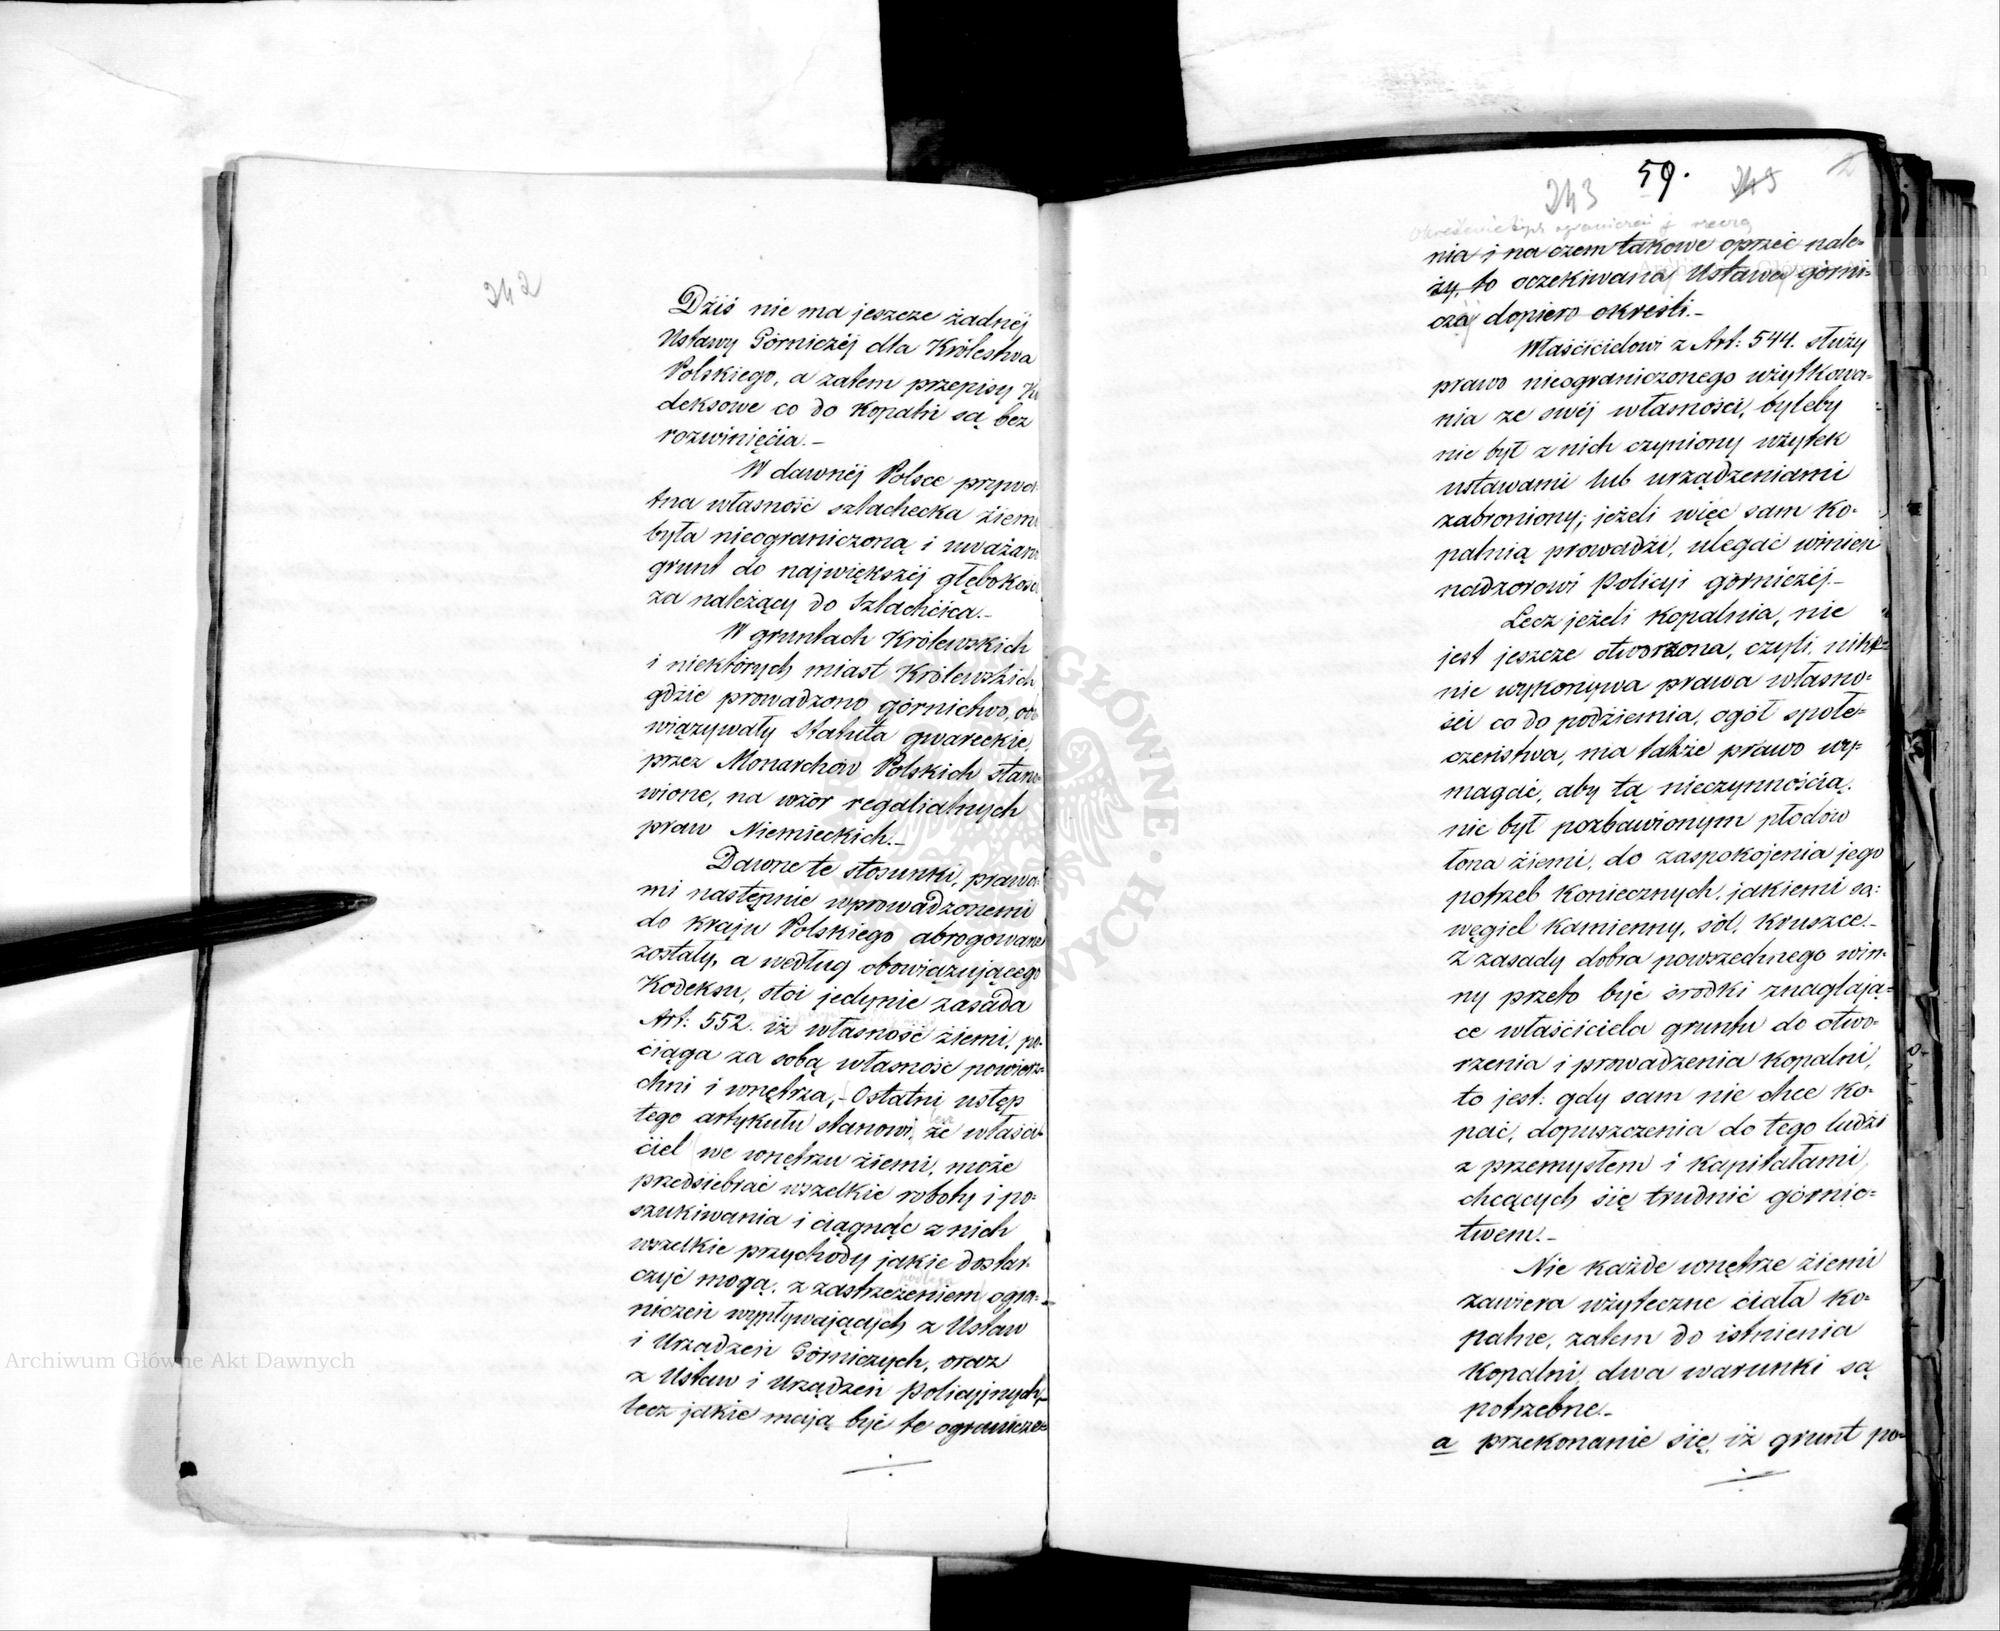 242
Dziś nie ma jeszcze żadnéj
Ustawy Górniczéj dla Królestwa
Polskiego, a zatem przepisy Ko
deksowe co do Kopalń są bez
rozwinięcia.–
W dawnéj Polsce prywa-
tna własność szlachecka ziemi
była nieograniczoną i uważano
grunt do największéj głębokości
za należący do Szlachcica.–
W gruntach Królewskich
i niektórych miast Królewskich,
gdzie prowadzono górnictwo, obo
wiązywały Statuta gwareckie,
przez Monarchów Polskich stano-
wione, na wzór regalialnych
praw Niemieckich.–
Dawne te stosunki, prawa-
mi następnie wprowadzonemi
do kraju Polskiego abrogowane
zostały, a według obowiązującego
Kodeksu, stoi jedynie zasada
Art: 552. iż własność ziemi, po-
ciąga za sobą własność powierz-
chni i wnętrza,– Ostatni ustęp
tego artykułu stanowi, że właści-
ciel we wnętrzu ziemi, może
przedsiebrać wszelkie roboty i po-
szukiwania i ciągnąć z nich
wszelkie przychody jakie dostar-
czyć mogą, z zastrzeżeniem ogra-
niczeń wypływających z Ustaw
i Urządzeń Górniczych, oraz
z Ustaw i Urządzeń policyjnych,–
lecz jakie mają być te ogranicze-
243 59. 245
ograniczeń
nia i na czem takowe oprzeć nale-
ży, to oczekiwana Ustawa górni-
cza dopiero określi.–
Właścicielowi z Art: 544. służy
prawo nieograniczonego użytkowa-
nia ze swéj własności, byleby
nie był z nich czyniony użytek
ustawami lub urządzeniami
zabroniony; jeżeli więc sam ko-
palnią prowadzi, ulegać winien
nadzorowi Policyi górniczéj.–
Lecz jeżeli kopalnia, nie
jest jeszcze otworzona, czyli, nikt
nie wykonywa prawa własno-
ści co do podziemia, ogół społe-
czeństwa, ma także prawo wy-
magać, aby tą nieczynnością,
nie był pozbawionym płodów
łona ziemi, do zaspokojenia jego
potrzeb koniecznych, jakiemi są:
węgiel kamienny, sól, kruszce.–
Z zasady dobra powszechnego win-
ny przeto być środki znaglają-
ce właściciela gruntu do otwo-
rzenia i prowadzenia kopalni,
to jest: gdy sam nie chce ko-
pać, dopuszczenia do tego ludzi
z przemysłem i kapitałami,
chcących się trudnić górnic-
twem.–
Nie każde wnętrze ziemi
zawiera użyteczne ciała ko-
palne, zatem do istnienia
kopalni, dwa warunki są
potrzebne.–
a przekonanie się, iż grunt po-
Archiwum Główne Akt Dawnych